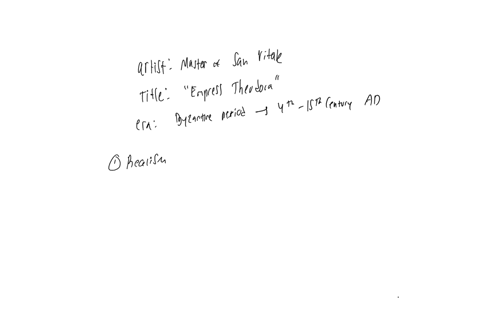 artist: Master of San Vitale
Title: "Empress Theodora"
era: Byzantine period → 4th - 15th Century AD
① Realism